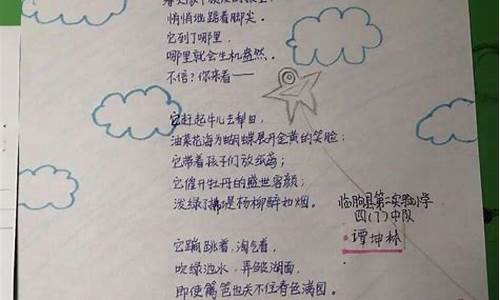 悄悄地踮着脚尖。
它到了哪里,
哪里就会生机盎然。
不信?你来看——
它赶起牛儿去犁田,
油菜花海为蝴蝶展开金黄的笑脸;
它带着孩子们放纸鸢;
它催开牡丹的盛世容颜;
泼绿了隋堤杨柳醉如烟。
临朐县第二实验小学
四(7)中队
谭坤林
它蹦跳着,淘气着,
吹绿池水,弄皱湖面,
即便篱笆也关不住春色满园。